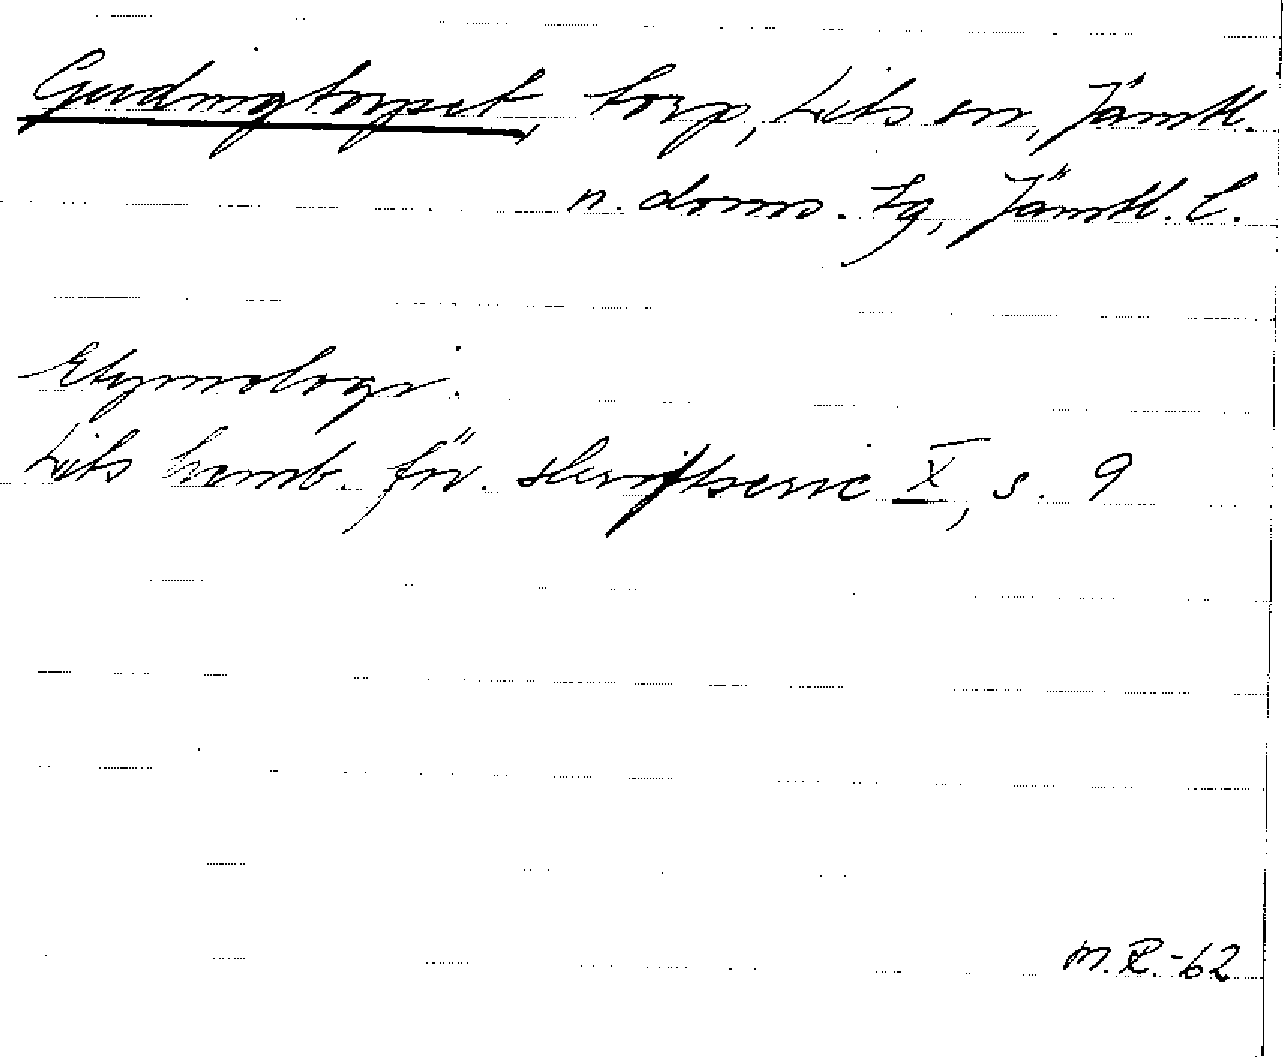 Gudmigtorpet, torp, Lits sn, Jämtl.
n. doms. tg, Jämtl. l.
Etymologi.
Lits hemb. för. skriftserie X, s. 9
M.R.-62